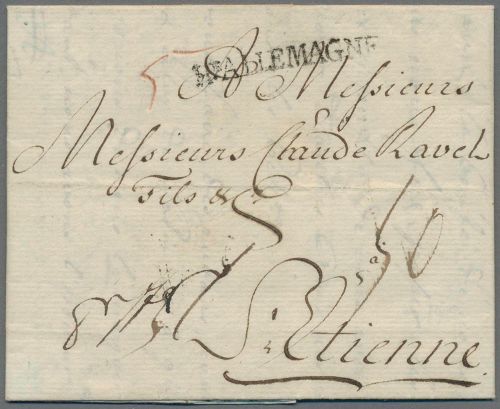 D'ALLEMAGNE
A Messieurs
Messieurs Claude Ravel
Fils &
à
St. Etienne.